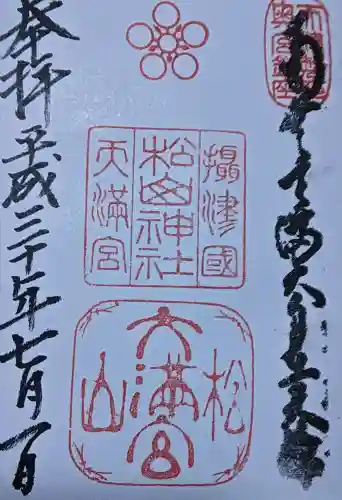 満大自在天
攝津國
松山神社
天満宮
松
天満宮
山
奉拝 平成三十年七月一日